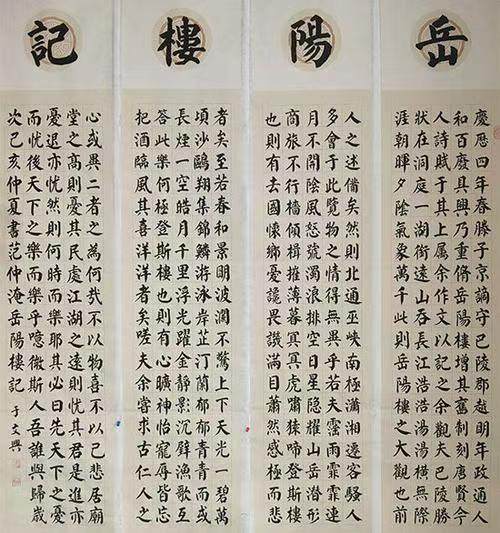 岳陽樓記
慶曆四年春滕子京謫守巴陵郡越明年政通人
和百廢具興乃重脩岳陽樓增其舊制刻唐賢今
人詩賦于其上属余作文以記之余觀夫巴陵勝
狀在洞庭一湖銜遠山吞長江浩浩湯湯橫無際
涯朝暉夕陰氣象萬千此則岳陽樓之大觀也前
人之述備矣然則北通巫峽南極瀟湘遷客騷人
多會于此覽物之情得無異乎若夫霪雨霏霏連
月不開陰風怒號濁浪排空日星隱耀山岳潛形
商旅不行檣傾楫摧薄暮冥冥虎嘯猿啼登斯樓
也則有去國懷鄉憂讒畏譏滿目蕭然感極而悲
者矣至若春和景明波瀾不驚上下天光一碧萬
頃沙鷗翔集錦鱗游泳岸芷汀蘭郁郁青青而或
長煙一空皓月千里浮光躍金靜影沉璧漁歌互
答此樂何極登斯樓也則有心曠神怡寵辱皆忘
把酒臨風其喜洋洋者矣嗟夫余嘗求古仁人之
心或異二者之為何哉不以物喜不以己悲居廟
堂之高則憂其民處江湖之遠則憂其君是進亦
憂退亦憂然則何時而樂耶其必曰先天下之憂
而憂後天下之樂而樂乎噫微斯人吾誰與歸歲
次己亥仲夏書范仲淹岳陽樓記 于文興